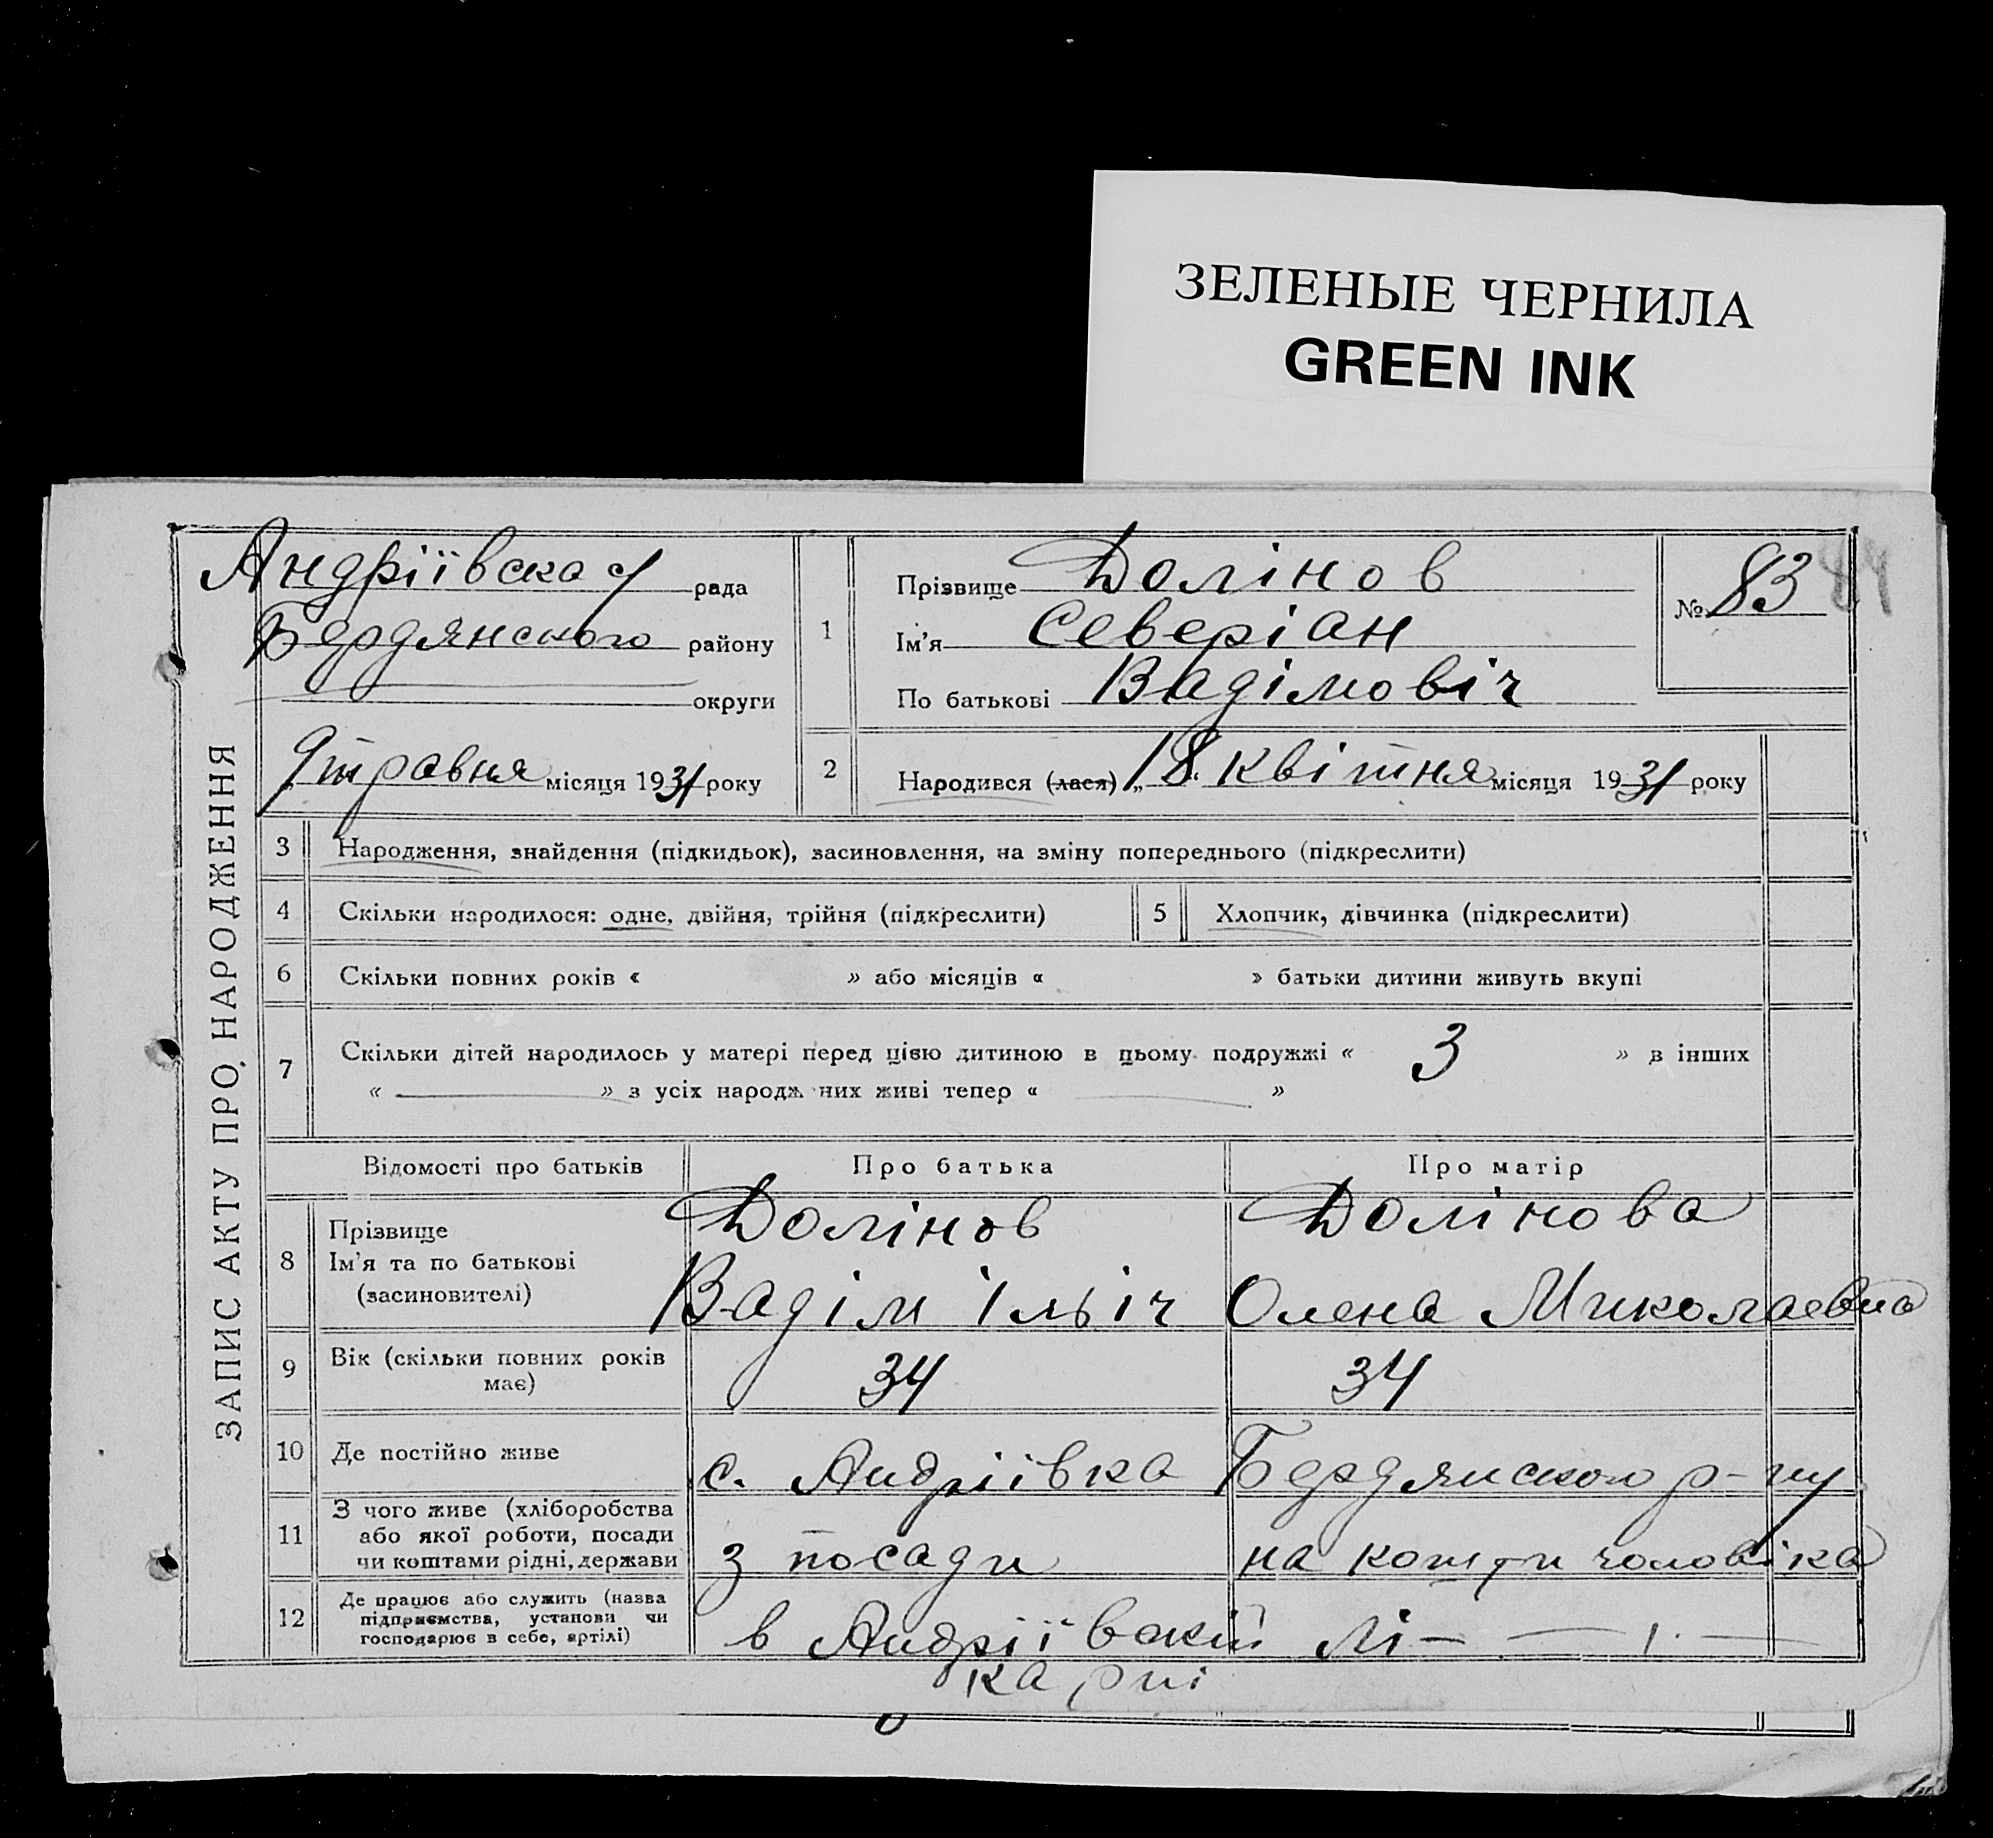 ЗЕЛЕНЫЕ ЧЕРНИЛА
GREEN INK
ЗАПИС АКТУ ПРО НАРОДЖЕННЯ
Андріївска рада
Бердянського району
округи
9 травня місяця 1931 року
1
Прізвище Долінов
Ім'я Северіан
По батькові Вадімовіч
№ 83
2
Народився (лася) „18" квітня місяця 1931 року
3 Народження, знайдення (підкидьок), засиновлення, на зміну попереднього (підкреслити)
4 Скільки народилося: одне, двійня, трійня (підкреслити) 5 Хлопчик, дівчинка (підкреслити)
6 Скільки повних років « » або місяців « » батьки дитини живуть вкупі
7 Скільки дітей народилось у матері перед цією дитиною в цьому подружжі « 3 » в інших
« — » з усіх народж них живі тепер « — »
Відомості про батьків Про батька Про матір
8 Прізвище Долінов Долінова
Ім'я та по батькові Вадім Ільіч Олена Миколаевна
(засиновителі)
9 Вік (скільки повних років має) 34 34
10 Де постійно живе с. Андріївка Бердянського р-ну
11 З чого живе (хліборобства
або якої роботи, посади
чи коштами рідні, держави з посади на кошти чоловіка
12 Де працює або служить (назва
підприємства, установи чи
господарює в себе, артілі) в Андріївскій лі-
карні